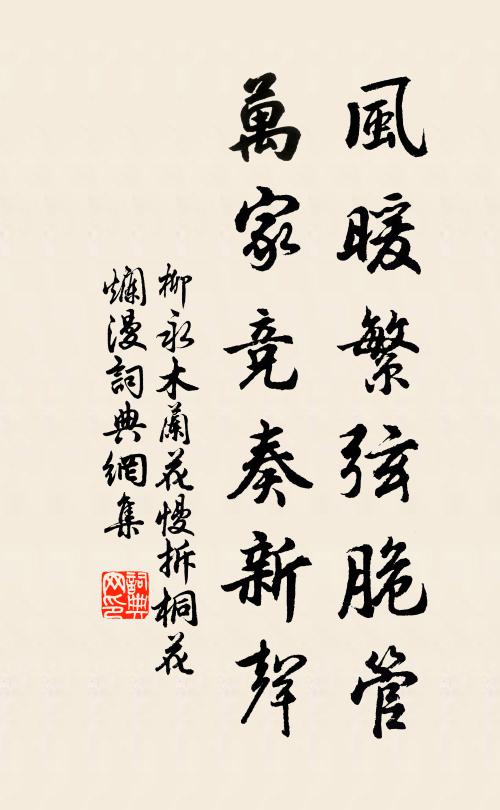 風暖繁弦脆管
萬家竞奏新聲
柳永木蘭花慢拆桐花
爛漫詞典網集
詞典网印